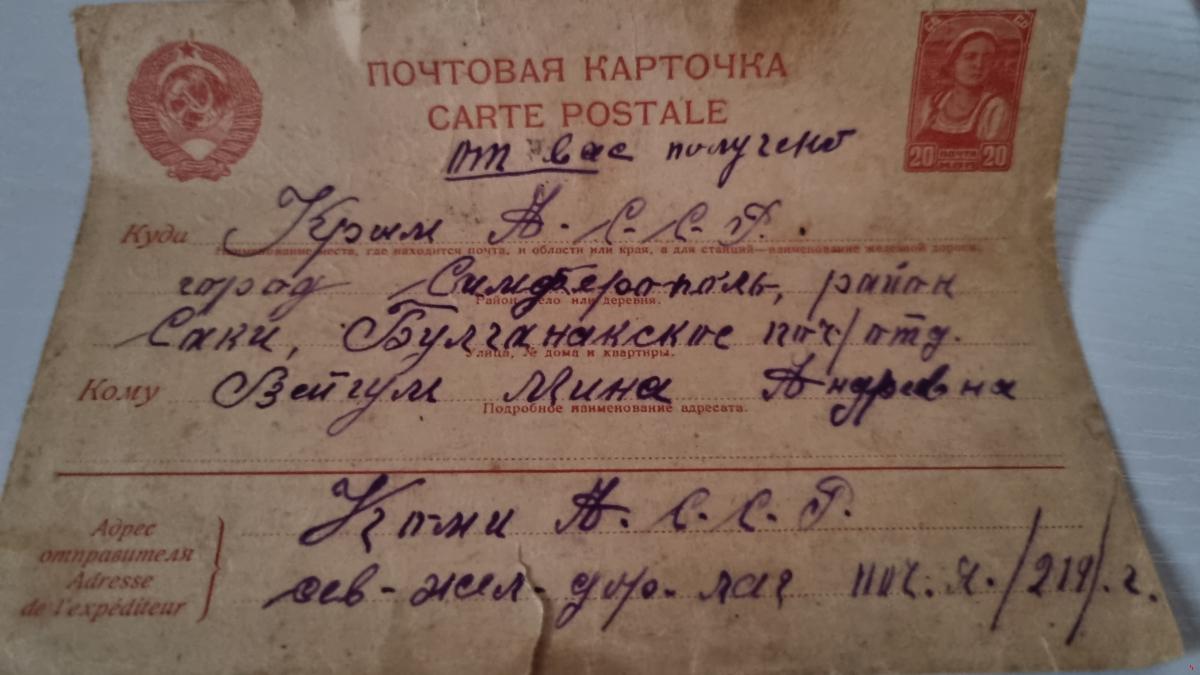 ПОЧТОВАЯ КАРТОЧКА
CARTE POSTALE
от вас получено
Куда Крым А. С. С. Р.
Наименование места, где находится почта, и области или края, а для станций—наименование железной дороги.
город Симферополь, район
Район, село или деревня.
Саки, Булганакское поч/отд.
Улица, № дома и квартиры.
Кому Вейгум Мина Андревна
Подробное наименование адресата.
Коми А. С. С. Р.
Адрес
отправителя
Adresse
de l'expéditeur
сев-жел-дор. лаг поч. я. /219/. г.
20 ПОЧТА 20